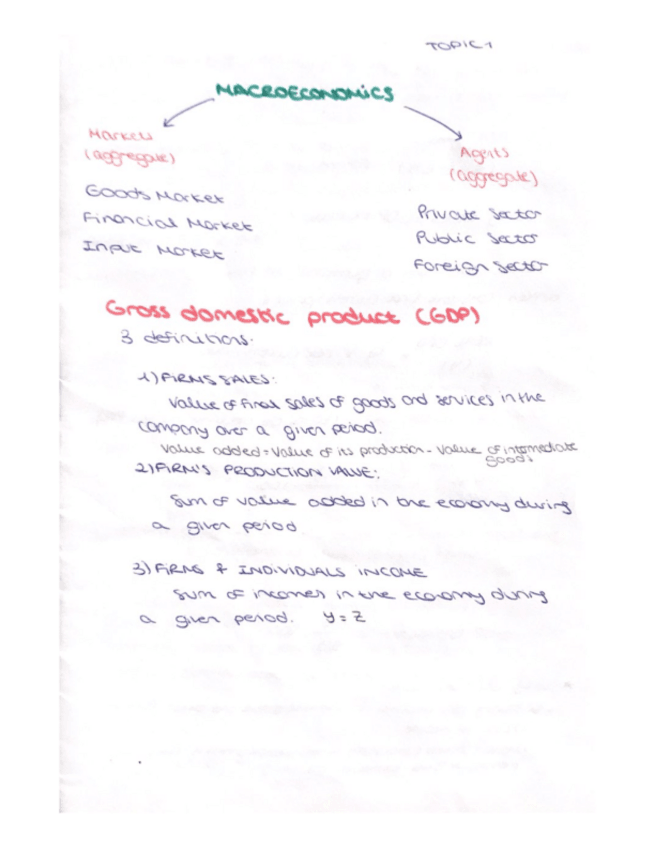 TOPIC 1
MACROECONOMICS
Markets
(aggregate)
Goods Market
Financial Market
Input Market
Agents
(aggregate)
Private Sector
Public Sector
Foreign Sector
Gross domestic product (GDP)
3 definitions:
1) FIRMS SALES:
Value of final sales of goods and services in the
company over a given period.
Value added = Value of its production - Value of intermediate
goods
2) FIRM'S PRODUCTION VALUE:
Sum of value added in the economy during
a given period
3) FIRMS & INDIVIDUALS INCOME
Sum of incomes in the economy during
a given period. Y = Z